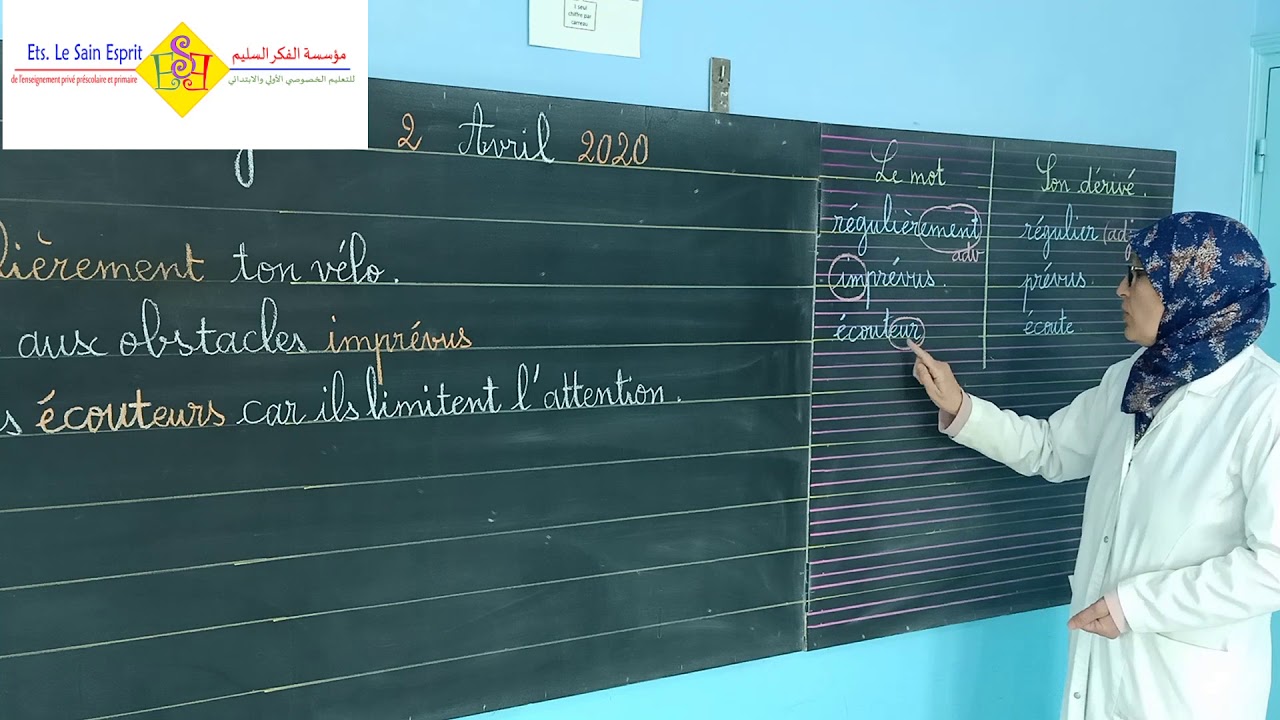 Ets. Le Sain Esprit
de l'enseignement privé préscolaire et primaire
مؤسسة الفكر السليم
للتعليم الخصوصي الأولي والابتدائي
1 seul
chiffre par
carreau
2 Avril 2020
lièrement ton vélo.
aux obstacles imprévus
s écouteurs car ils limitent l'attention.
Le mot
Son dérivé.
régulièrement
adv
régulier (adj
imprévus.
prévus.
écouteur
écoute